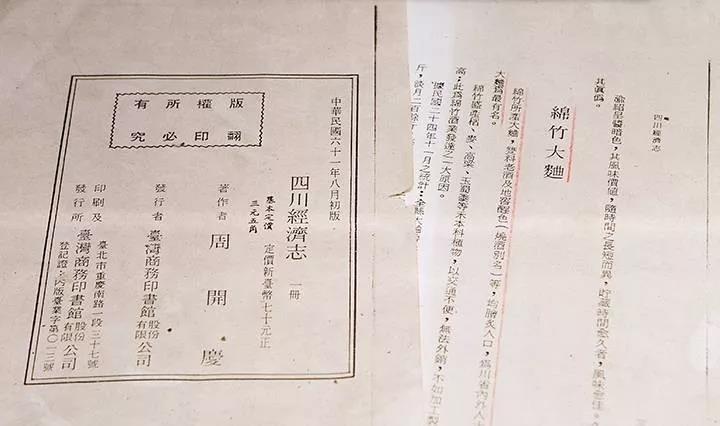 四川經濟志
渝紹呈醬暗色,其風味價值,隨時間之長短而異,貯藏時間愈久者,風味愈佳。
其眞僞。
綿竹大麯
綿竹所產大麯,雙料老酒及地窖醒色(燒酒別名)等,均膾炙人口,爲川省內外人士
大麯爲最有名。
綿竹盛產稻、麥、高梁、玉蜀黍等禾本科植物,以交通不便,無法外銷,不如加工製
高,此爲綿竹酒業發達之一大原因。
據民國二十四年十一月之統計:全縣
斤,該月二百餘
中華民國六十一年八月初版
四川經濟志 一冊
基本定價
三元五角
定價新臺幣七十元正
著作者 周開慶
發行者 臺灣商務印書館股份有限公司
印刷及發行所 臺北市重慶南路一段三十七號
臺灣商務印書館股份有限公司
登記證:內版臺業字第〇一三號
版權所有
翻印必究